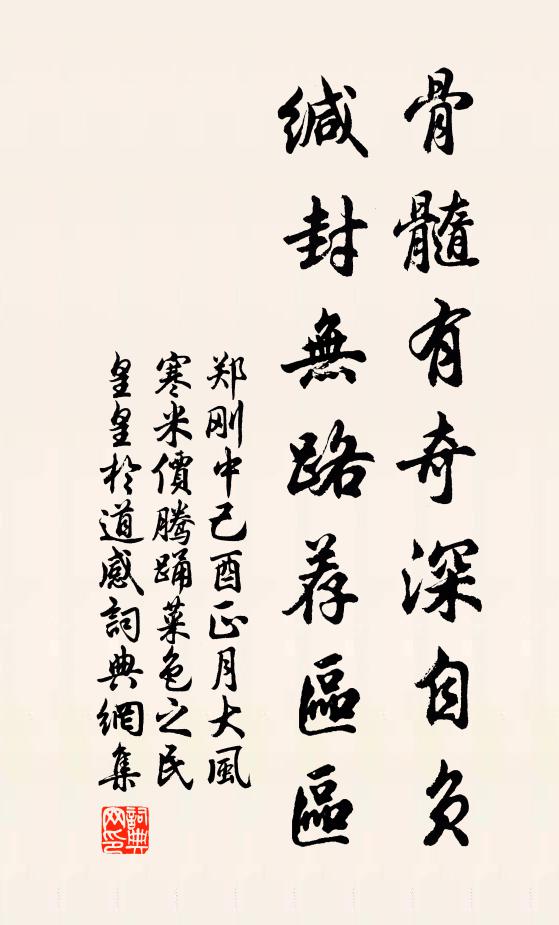 骨髓有奇深自负
缄封無路荐區區
郑刚中己酉正月大風
寒米價騰踊菜色之民
皇皇於道感詞典網集
詞典网印